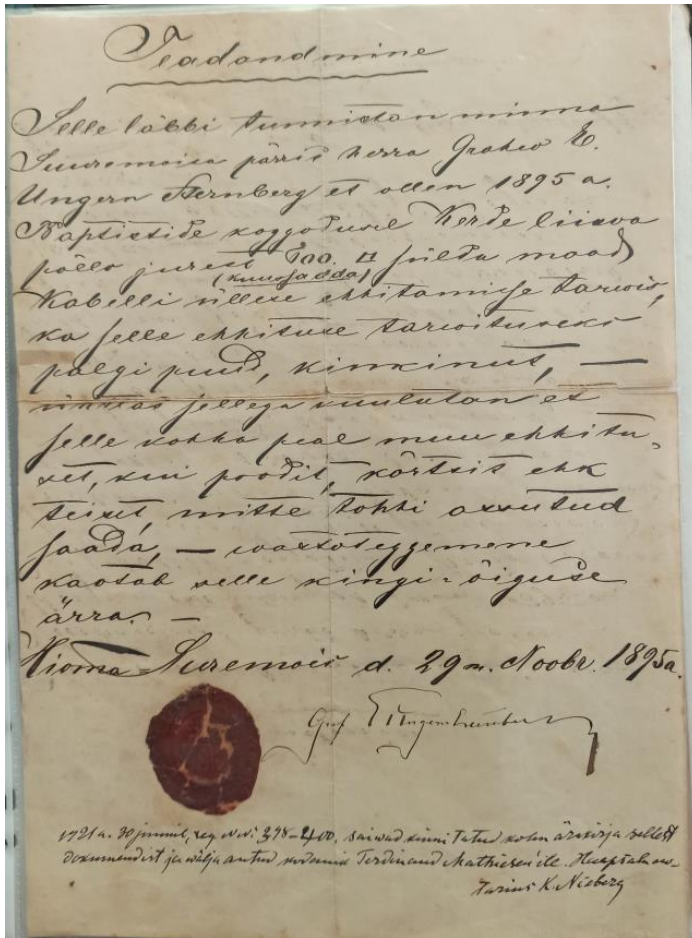 Teadandmine
Selle läbbi tunnistan minna
Suuremoisa pärris herra Grahw E.
Ungern Sternberg et ollen 1895 a.
Baptistide koggodusel Kerde liiwa
põllo jurest 600. □ sülda maad
(kuussadda)
Kabelli üllese ehhitamisse tarwis,
ka selle ehhituse tarwituseks
palgi puud, kinkinut, —
ühtlas sellega kuulutan et
selle kohha peal muu ehhitu-
set, kui poodit, kõrtsit ehk
teiset, mitte tohhi assutud
saada, — wastoteggemene
kaotab selle kingi-õiguse
ärra. —
Hioma Suremois d. 29n. Noobr. 1895a.
Graf E Ungern Sternberg
1921 a. 30 junnil, reg. NNi 398-400, saiwad kinnitatud kolm ärakirja sellest
dokumendist ja wälja antud kodanik Ferdinand Mathiesen'ile. Haapsalu no-
tarius K. Nieberg